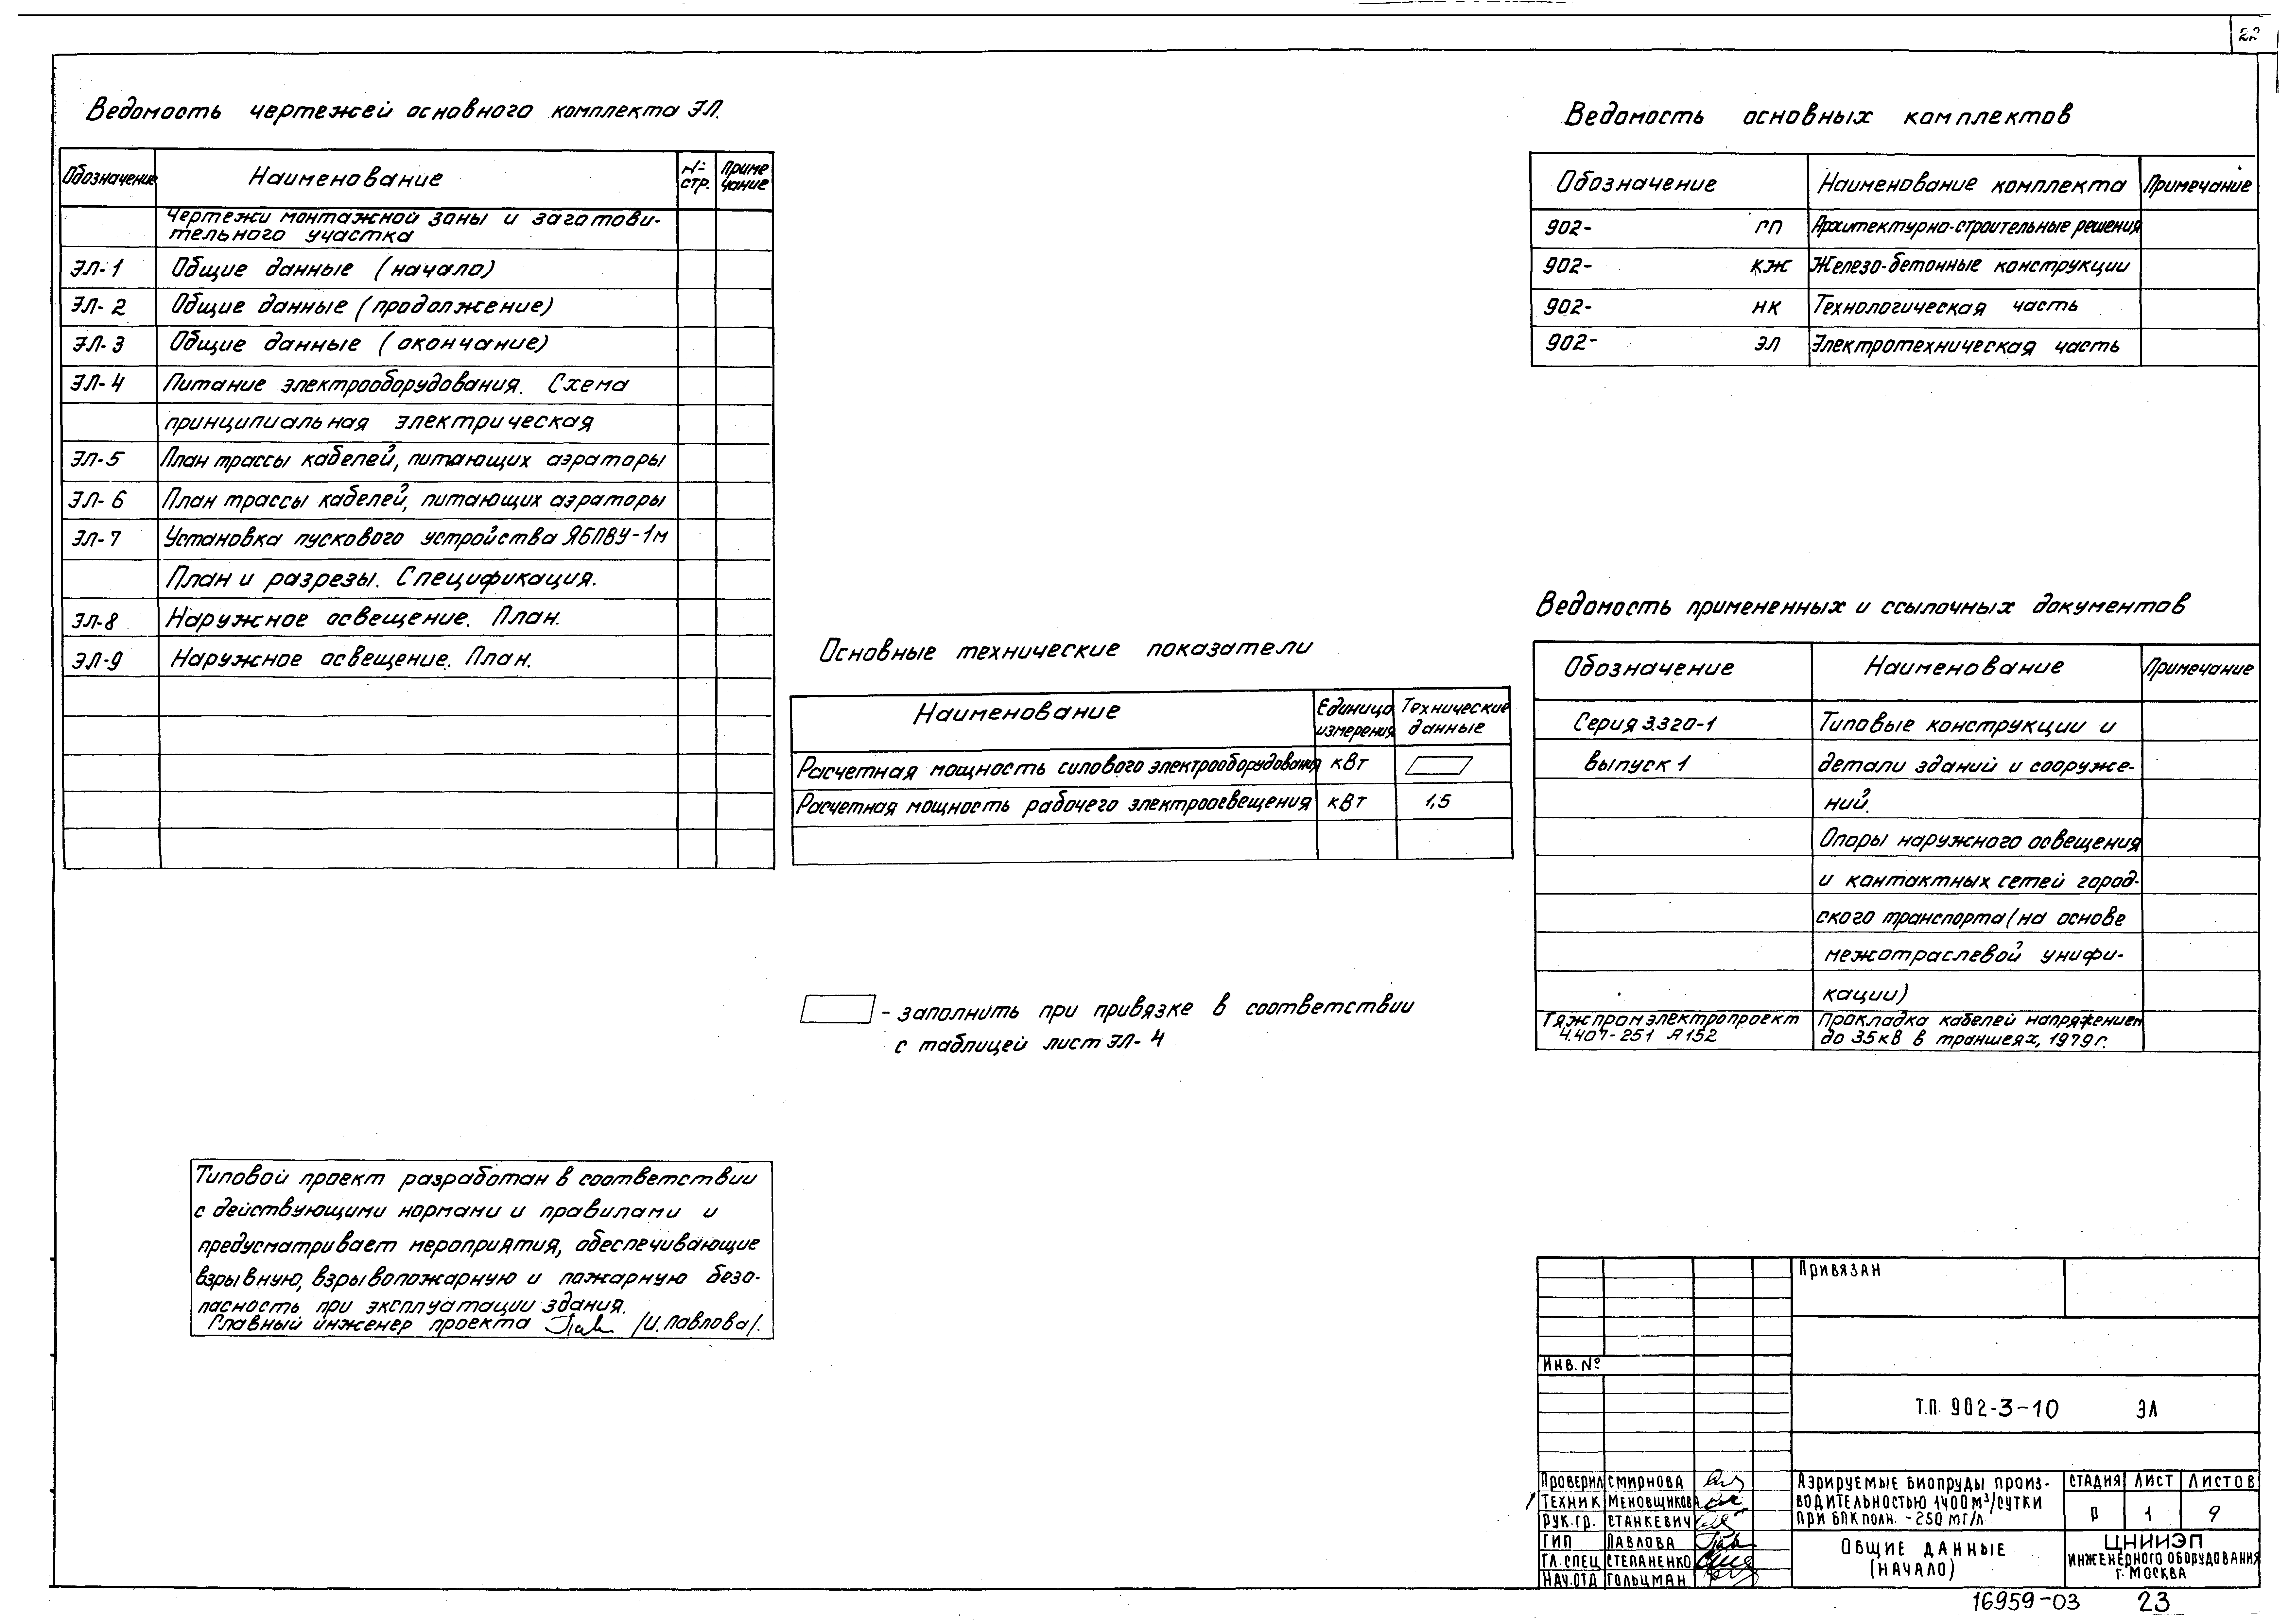 22
Ведомость чертежей основного комплекта ЭЛ.
Обозначение Наименование № стр. Приме чание
Чертежи монтажной зоны и заготови-
тельного участка
ЭЛ-1 Общие данные (начало)
ЭЛ-2 Общие данные (продолжение)
ЭЛ-3 Общие данные (окончание)
ЭЛ-4 Питание электрооборудования. Схема
принципиальная электрическая
ЭЛ-5 План трассы кабелей, питающих аэраторы
ЭЛ-6 План трассы кабелей, питающих аэраторы
ЭЛ-7 Установка пускового устройства ЯБПВУ-1м
План и разрезы. Спецификация.
ЭЛ-8 Наружное освещение. План.
ЭЛ-9 Наружное освещение. План.
Основные технические показатели
Наименование Единица измерения Технические данные
Расчетная мощность силового электрооборудования кВт
Расчетная мощность рабочего электроосвещения кВт 1,5
- заполнить при привязке в соответствии
с таблицей лист ЭЛ-4
Типовой проект разработан в соответствии
с действующими нормами и правилами и
предусматривает мероприятия, обеспечивающие
взрывную, взрывопожарную и пожарную безо-
пасность при эксплуатации здания.
Главный инженер проекта /И. Павлова/.
Ведомость основных комплектов
Обозначение Наименование комплекта Примечание
902- ГП Архитектурно-строительные решения
902- КЖ Железо-бетонные конструкции
902- НК Технологическая часть
902- ЭЛ Электротехническая часть
Ведомость примененных и ссылочных документов
Обозначение Наименование Примечание
Серия 3.320-1 Типовые конструкции и
выпуск 1 детали зданий и сооруже-
ний.
Опоры наружного освещения
и контактных сетей город-
ского транспорта (на основе
межотраслевой унифи-
кации)
Тяжпромэлектропроект Прокладка кабелей напряжением
4.407-251 А152 до 35кв в траншеях, 1979г.
Привязан
Инв. №
Т.П. 902-3-10 ЭЛ
Проверил Смирнова
Техник Меновщикова
Рук.гр. Станкевич
ГИП Павлова
Гл.спец Степаненко
Нач.отд Гольцман
Аэрируемые биопруды произ-
водительностью 1400 м³/сутки
при БПК полн. ~250 мг/л
Стадия Лист Листов
Р 1 9
Общие данные
(начало)
ЦНИИЭП
инженерного оборудования
г. Москва
16959-03 23